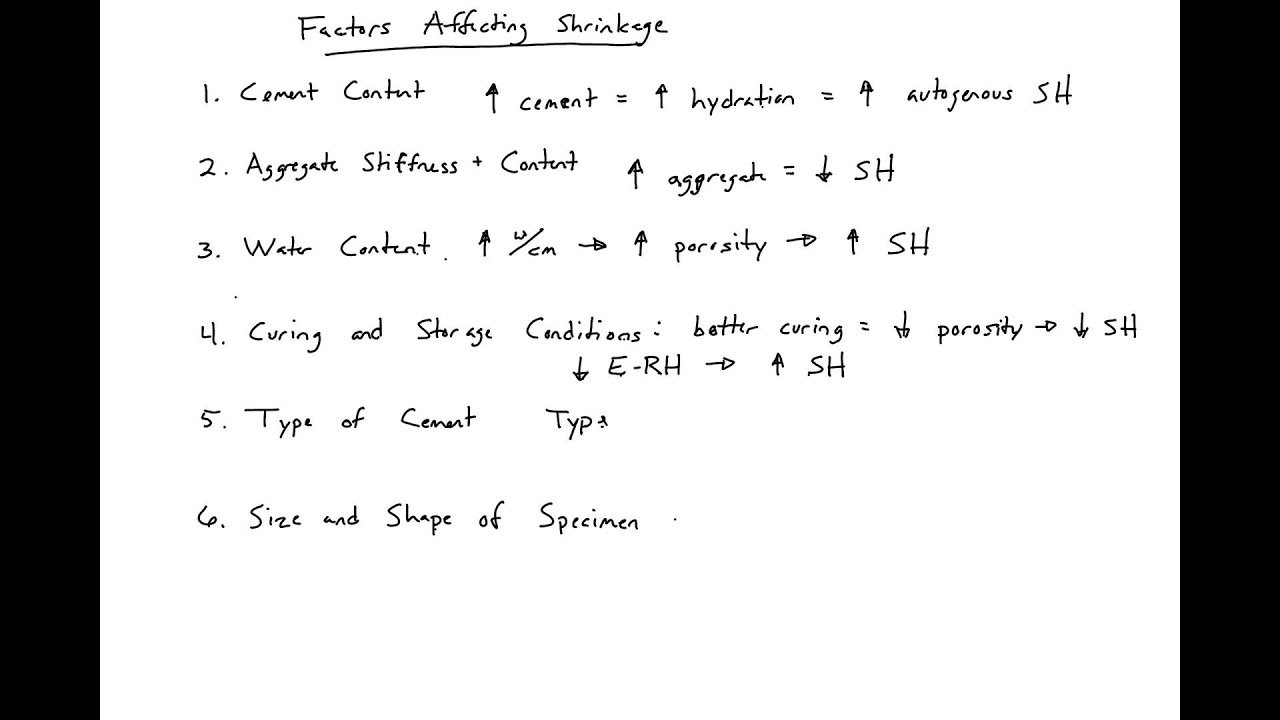 Factors Affecting Shrinkage
1. Cement Content ↑ cement = ↑ hydration = ↑ autogenous SH
2. Aggregate Stiffness + Content ↑ aggregate = ↓ SH
3. Water Content ↑ w/cm → ↑ porosity → ↑ SH
4. Curing and Storage Conditions: better curing = ↓ porosity → ↓ SH
↓ E-RH → ↑ SH
5. Type of Cement Type
6. Size and Shape of Specimen